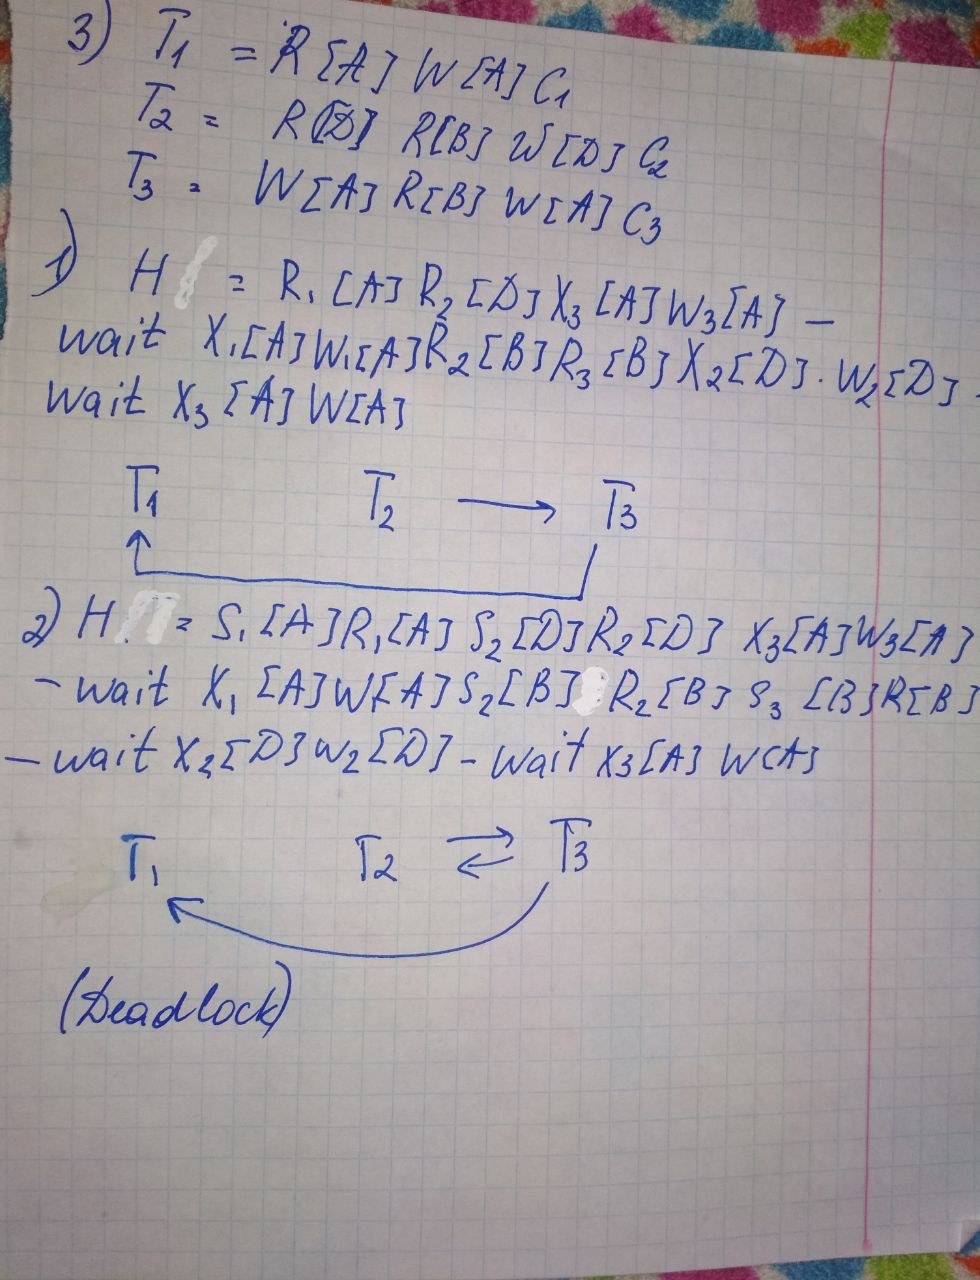 3) T1 = R[A] W[A] C1
T2 = R[D] R[B] W[D] C2
T3 = W[A] R[B] W[A] C3
1) H = R1[A] R2[D] X3[A] W3[A] –
wait X1[A] W1[A] R2[B] R3[B] X2[D]. W2[D] -
wait X3[A] W[A]
T1 T2 → T3
2) H = S1[A] R1[A] S2[D] R2[D] X3[A] W3[A]
- wait X1[A] W[A] S2[B] R2[B] S3[B] R[B]
- wait X2[D] W2[D] - wait X3[A] W[A]
T1 T2 ⇄ T3
(Deadlock)